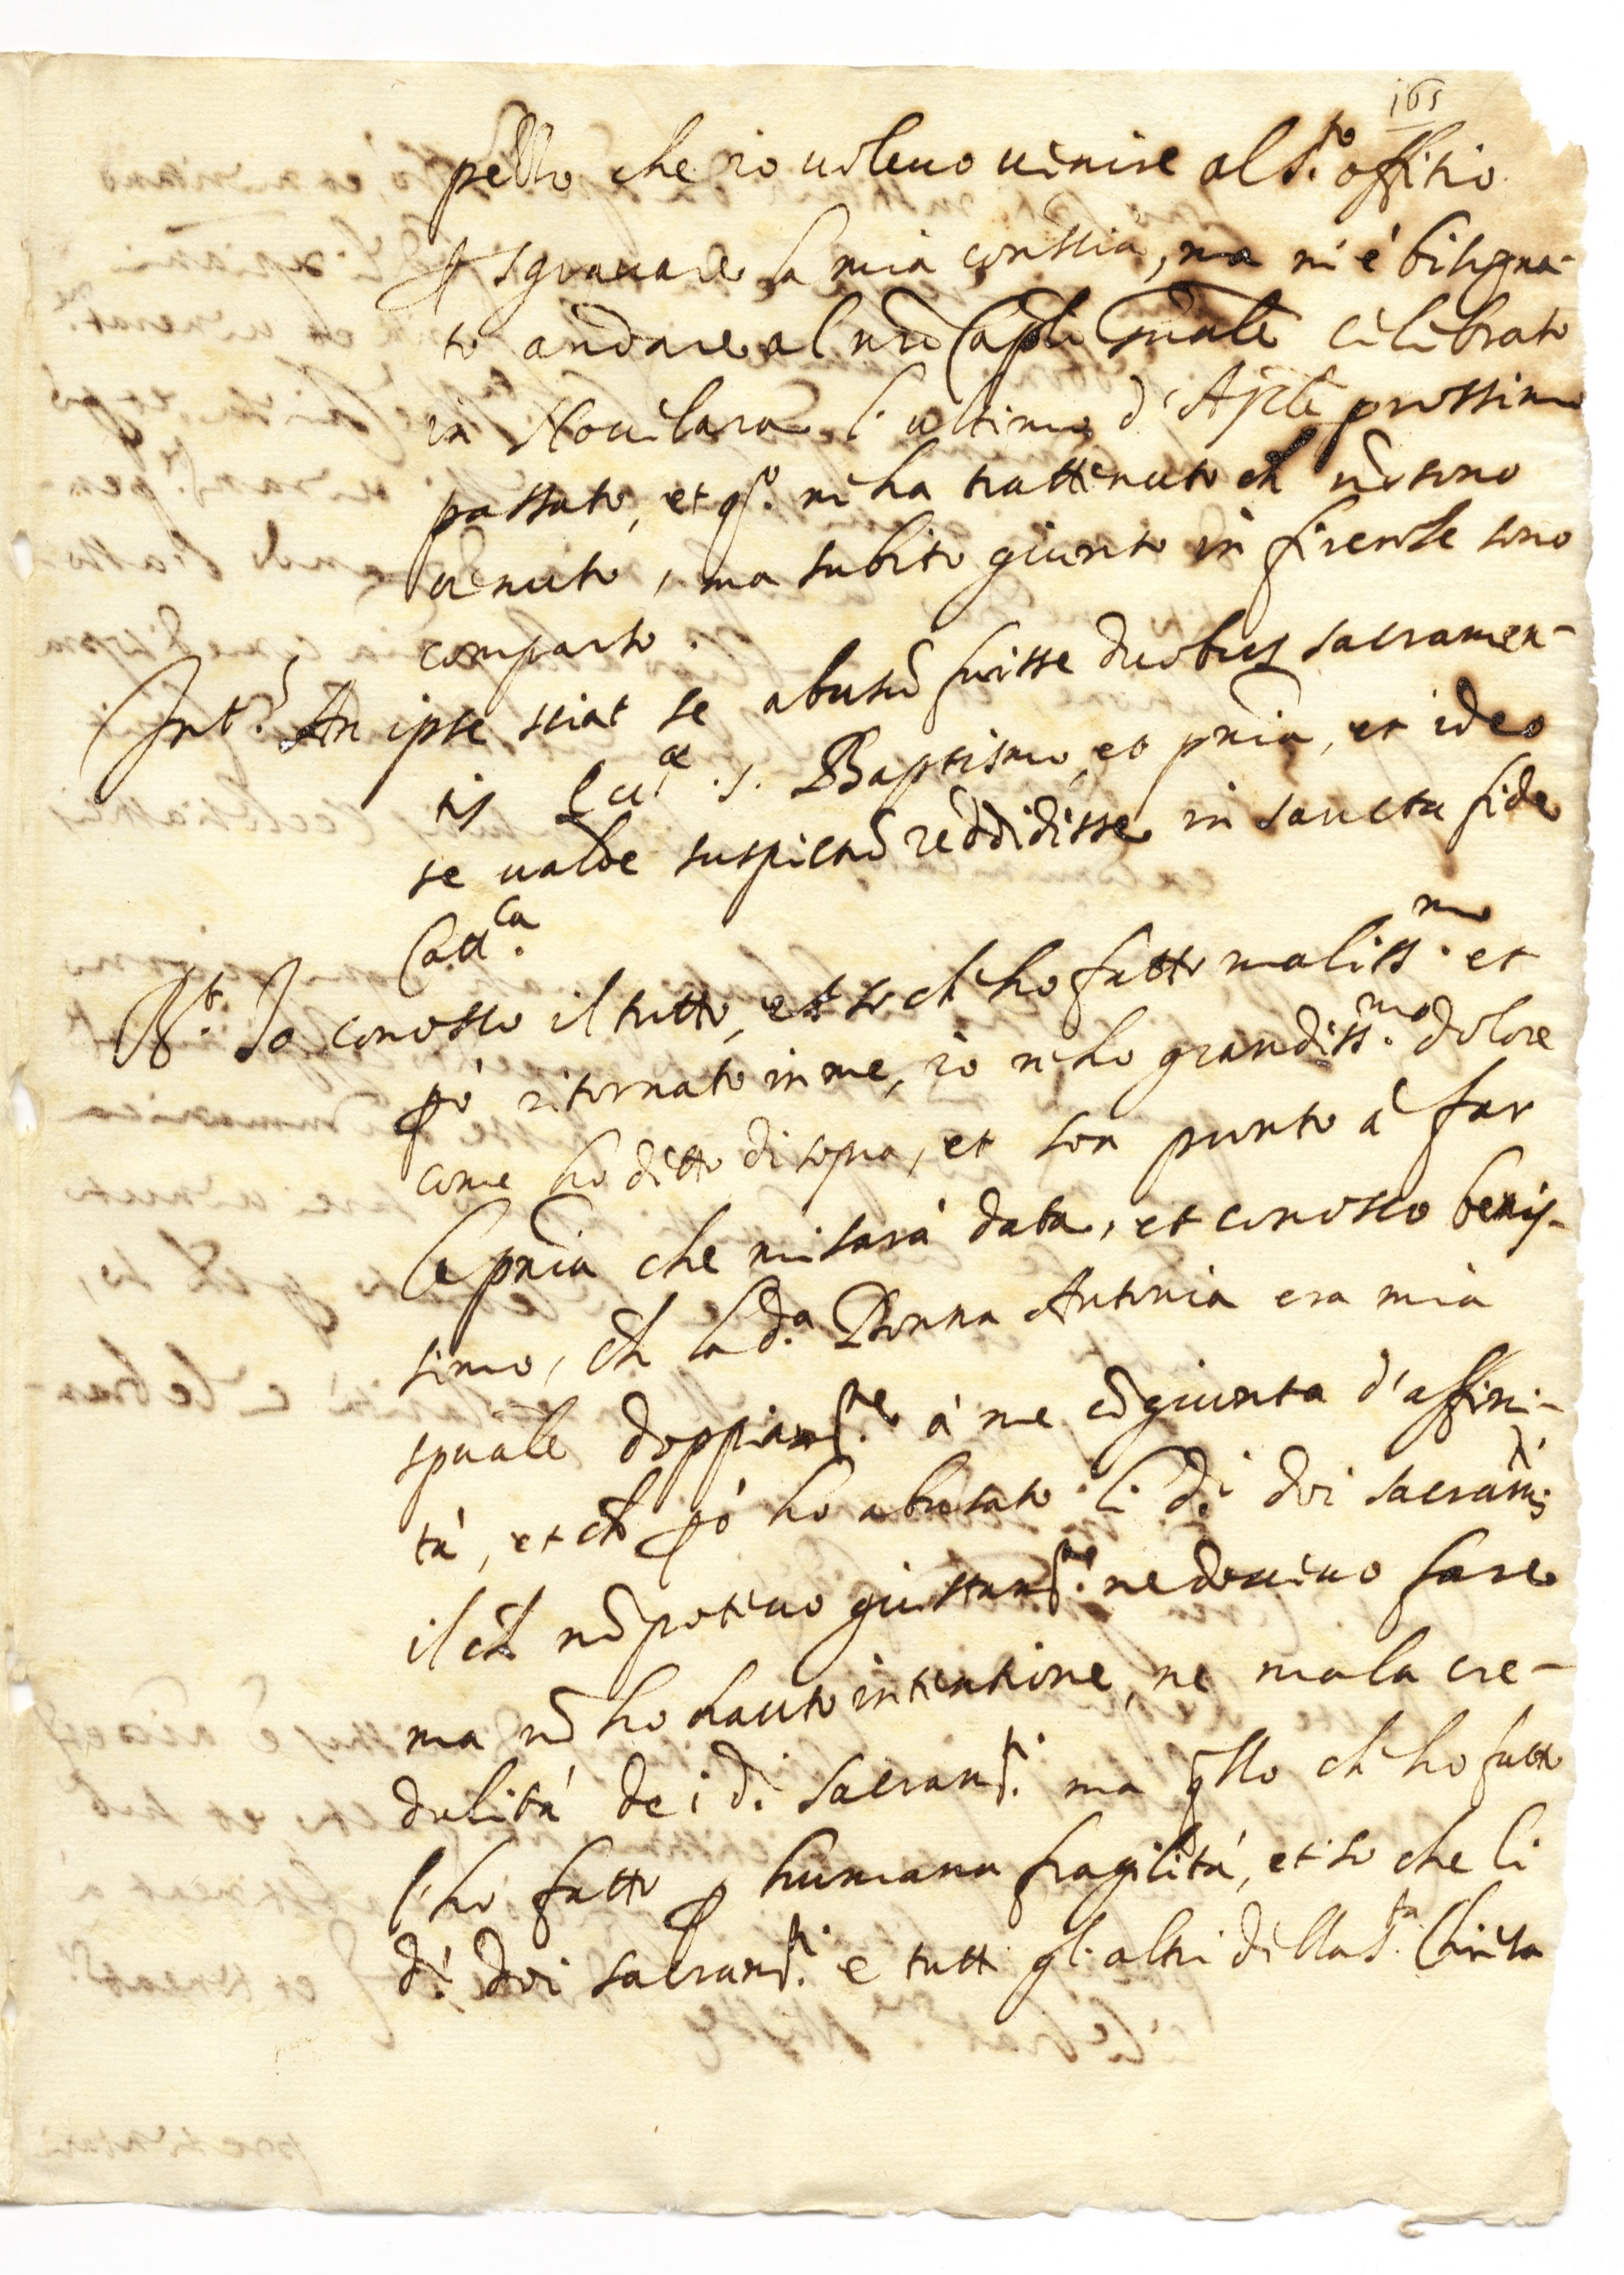 165
petto che io uoleuo uenire al S.to offitio
p sgrauare la mia constia, ma mi è bisogna-
to andare al nrõ Caplo Gñale celebrato
in Nouilara l'ultimo d'Aple prossimo
passato, et q.o mi ha trattenuto ch nõ sono
uenuto, ma subito giunto in firenze sono
comparso.
Int.s An ipse sciat se abusũ fuisse duobus sacramen-
tis Eccl.ae .s. Baptismo, et pñia, et ideo
se ualde suspectũ reddidisse in sancta fide
Catt.ca
R.t Io conosco il tutto, et so ch ho fatto maliss.mo et
pò ritornato in me, io n'ho grandiss.mo dolore
come ho ditto di sopra, et son pronto à far
la pñia che mi sarà data, et conosco benis-
simo, ch la d.a Donna Antonia era mia
spũale doppiam.te à me cõgiunta d'affini-
tà, et ch pò ho abusato li d.i doi sacram.ti
il ch nõ poteuo giustam.te ne doueuo fare
ma nõ ho hauuto intentione, ne mala cre-
dulità de i d.i sacram.ti ma qllo ch ho fatto
l'ho fatto p humana fragilità, et so che li
d.i doi sacram.ti e tutti gl'altri della S.ta Chiesa